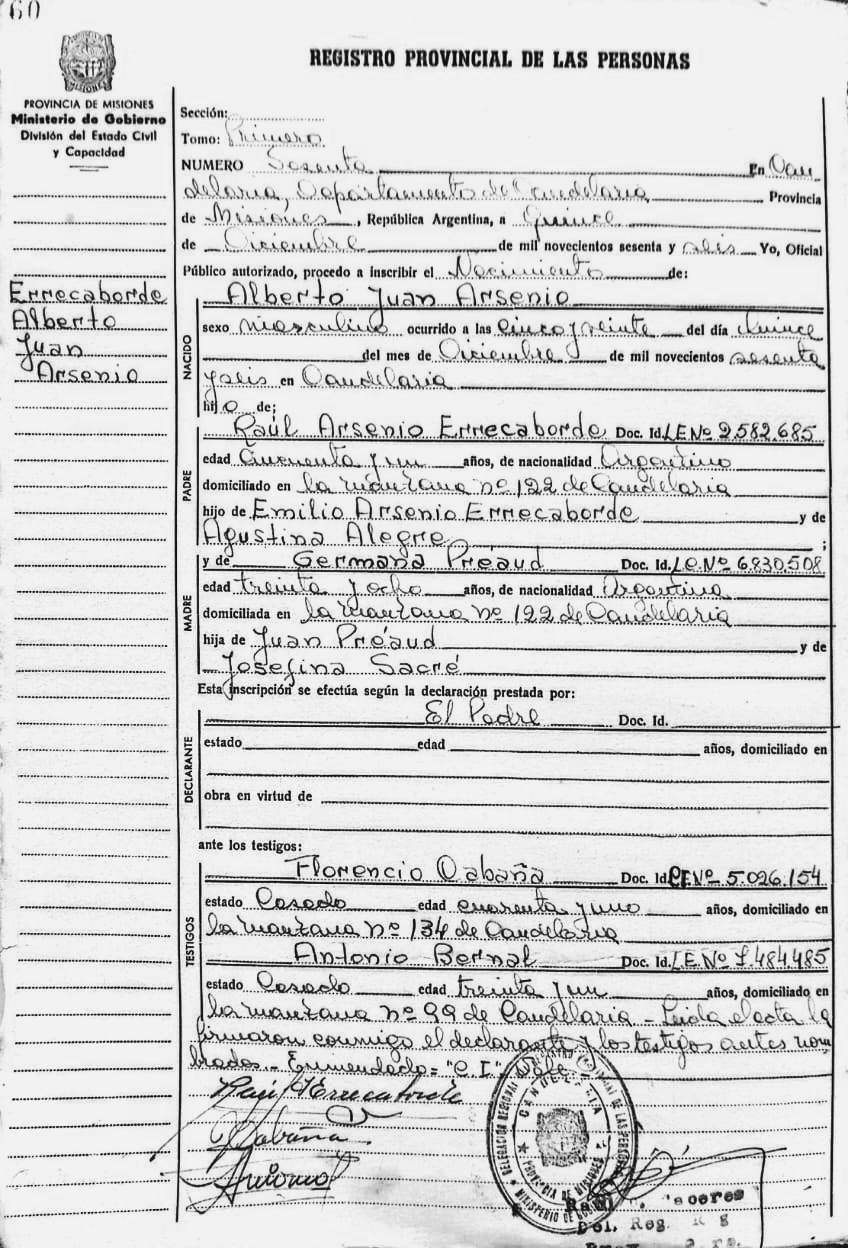 60
REGISTRO PROVINCIAL DE LAS PERSONAS
PROVINCIA DE MISIONES
Ministerio de Gobierno
División del Estado Civil
y Capacidad
Errecaborde
Alberto
Juan
Arsenio
Sección:
Tomo: Primero
NUMERO Sesenta En Can
delaria, Departamento de Candelaria, Provincia
de Misiones, República Argentina, a Quince
de Diciembre de mil novecientos sesenta y seis Yo, Oficial
Público autorizado, procedo a inscribir el Nacimiento de:
NACIDO
Alberto Juan Arsenio
sexo masculino ocurrido a las cinco y veinte del día quince
del mes de Diciembre de mil novecientos sesenta
y seis en Candelaria
hijo de:
PADRE
Raúl Arsenio Errecaborde Doc. Id. LE Nº 2.582.685
edad Cincuenta y un años, de nacionalidad Argentino
domiciliado en la manzana nº 122 de Candelaria
hijo de Emilio Arsenio Errecaborde y de
Agustina Alegre ;
MADRE
y de Germana Préaud Doc. Id. LC. Nº 6.830.508
edad treinta y ocho años, de nacionalidad Argentina
domiciliada en la manzana nº 122 de Candelaria
hija de Juan Préaud y de
Josefina Sacré
Esta inscripción se efectúa según la declaración prestada por:
DECLARANTE
El Padre Doc. Id.
estado edad años, domiciliado en
obra en virtud de
ante los testigos:
TESTIGOS
Florencio Cabaña Doc. Id. Nº 5.026.154
estado Casado edad cuarenta y uno años, domiciliado en
la manzana nº 134 de Candelaria
Antonio Bernal Doc. Id. L.E. Nº 7.484.485
estado Casado edad treinta y un años, domiciliado en
la manzana nº 99 de Candelaria - Leida el acta la
firmaron conmigo el declarante y los testigos antes nom
brados - Enmendado = "C.I." Vale
Raúl Errecaborde
Cabaña
Antonio
CANDELARIA
PROVINCIA DE MISIONES
MINISTERIO DE GOBIERNO
Del. Reg.